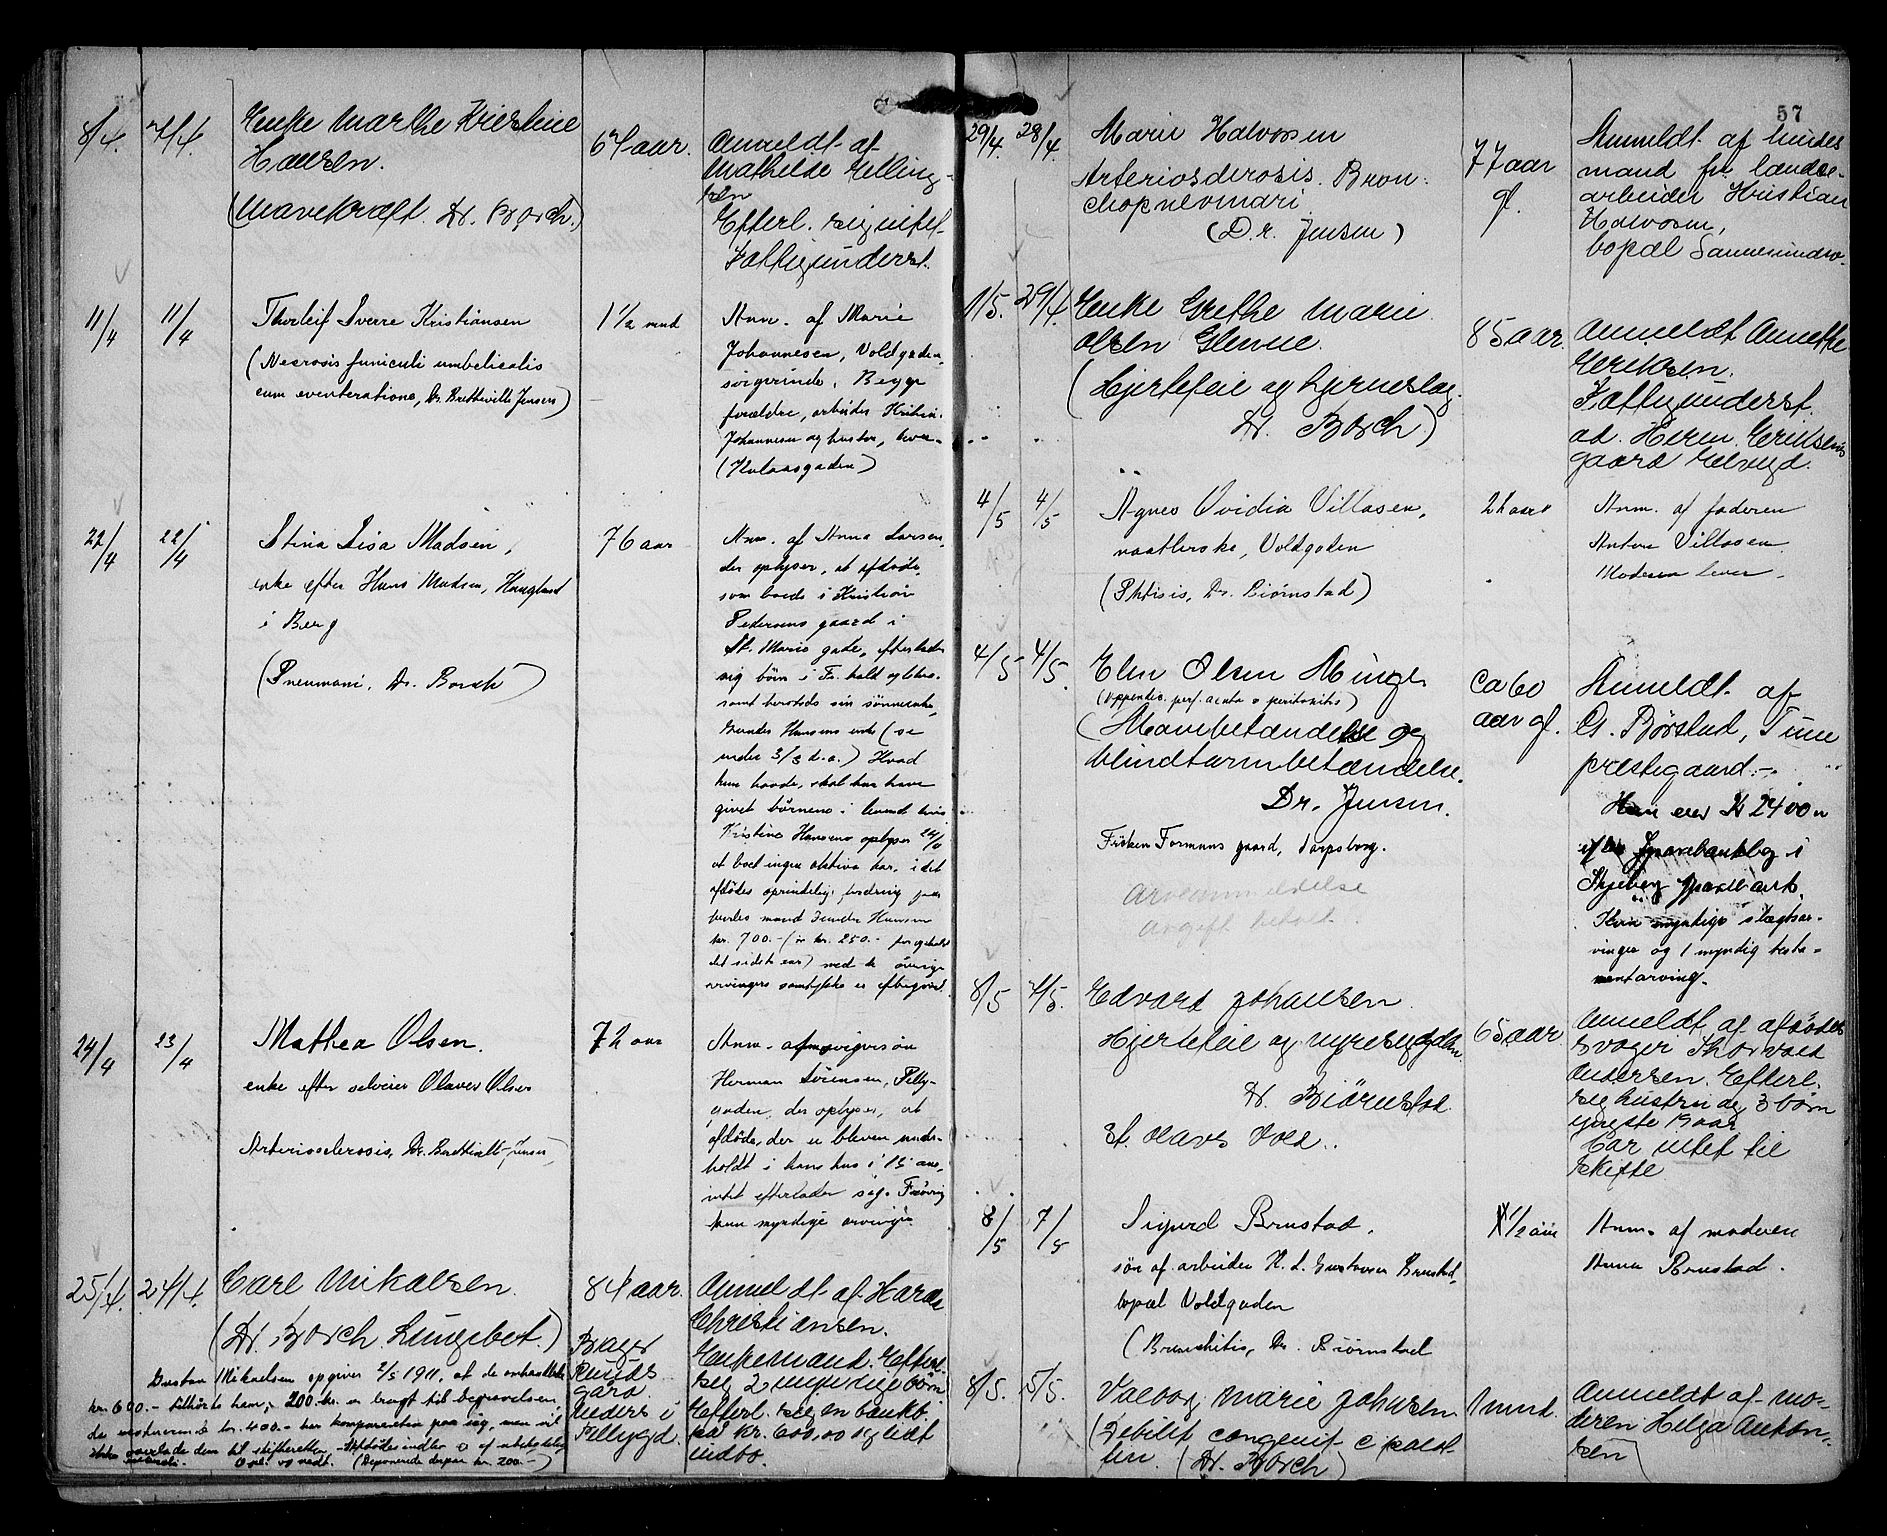 8/4. 7/4. Enke Marthe Kristine
Hansen. 67 aar.
(Mavekræft. Dr. Borch.)
Anmeldt af
Mathilde Helling-
sen
Efterl. sig intet
Fattigunderst.
11/4 11/4 Thorleif Sverre Kristiansen 1 1/2 mnd
(Necrosis funiculi umbelicalis
cum eventeratione, Dr. Bretteville Jensen)
Anm. af Marie
Johannesen, Voldgaden,
Begge
forældre, arbeider Kristian
Johannesen og hustru, lever
(Kulaasgaden)
22/4 22/4 Stina Lisa Madsen, 76 aar
enke efter Hans Madsen, Haugland
i Berg
(Pneumoni, Dr. Borch)
Anm. af Anna Larsen,
der oplyser, at afdøde,
som boede i Kristian
Pedersens gaard i
St. Marie gade, efterlader
sig børn i Fr.hald
samt hersteds sin
Hansens enke (se
under 3/3 d.a.) Hvad
hun havde, skal hun have
givet børnene i levende live
Kristine Hansens oplyser
at boet ingen aktiva har, idet
afdødes oprindelig fordring paa
hendes mand Hansen
kr. 700.- (
det sidste aar) med de øvrige
arvingers samtykke er eftergivet
24/4 23/4 Mathea Olsen. 72 aar
enke efter Olaves Olsen
Arteriosclerosis, Dr. Bretteville-Jensen
Anm. af svigersøn
Herman Sørensen, Pelly-
gaden, der oplyser, at
afdøde, der er bleven under-
holdt i hans hus i 15 aar,
intet efterlader sig. Forøvrig
kun myndige arvinger
25/4. 24/4. Carl Mikalsen. 84 aar.
(Dr. Borch. Lungebet.)
Bager
Ruuds
gård.
Anders i
Pellygd.
Anmeldt af Harda
Christiansen.
Enkemand. Efterl.
sig 2 myndige børn
Efterl. sig en bankb.
på kr. 600,00 og lidt
indbo.
Gustav Mikaelsen opgiver 2/5 1911, at de omhandlede
kr. 600.- tilhørte ham; 200 kr. er brugt til begravelsen,
de resterende kr. 400.- har komparenten paa sig, men vil
overlade dem til skifteretten.
Opl. og vedt. (Deponerede derpaa kr. 200.-)
57
29/4. 28/4. Marie Halvorsen 77 aar
gl.
Arteriosclerosis. Bron-
chopnevmoni
(Dr. Jensen)
Anmeldt af hendes
mand fh landse-
arbeider Kristian
Halvorsen,
bopæl Sannesundsv.
1/5. 29/4. Enke Grethe Marie
Olsen Glenne. 85 aar.
(Hjertefeil og hjerneslag.
Dr. Borch)
Anmeldt Annette
Eriksen.
Fattigunderst.
ad. Herm. Eriksens
gaard
4/5 4/5 Agnes Ovidia Villasen, 21 aar
Voldgaden
(Phtisis, Dr. Biørnstad)
Anm. af faderen
Anton Villasen
Moderen lever.
4/5 4/5. Elen Olsen Minge ca 60
aar gl.
(Appendic. perf. acuta & peritonitis)
(Mavebetændelse og
blindtarmbetændelse.
Dr. Jensen.
Frøken Formans gaard, Sarpsborg.
Arveanmeldelse
avgift betalt
Anmeldt af
G. Børstad, Tune
prestegaard.-
Hun eier Kr 2400 n
Sparebankbog i
Skjeberg sparebank.
Kun myndige slægtsar-
vinger og 1 myndig testa-
mentarving.
8/5 7/5. Edvard Johansen. 65 aar
Hjertefeil og nyresygdom
Dr. Biørnstad.
St. Olavs Vold..
Anmeldt af afdødes
svoger Thorvald
Andersen. Efterl.
sig hustru og 3 børn
yngste 19 aar
Har intet til
skifte
8/5 7/5 Sigurd Brustad, 1/2 aar
søn af arbeider H. L. Gustavsen Brustad,
bopæl Voldgaden
(Bronchitis, Dr. Biørnstad
Anm. af moderen
Anna Brustad.
8/5. 5/5. Valborg Marie Johnsen 1 mnd.
(Debilit congenit
(Dr. Borch)
Anmeldt af mo-
deren Helga Anton-
sen)